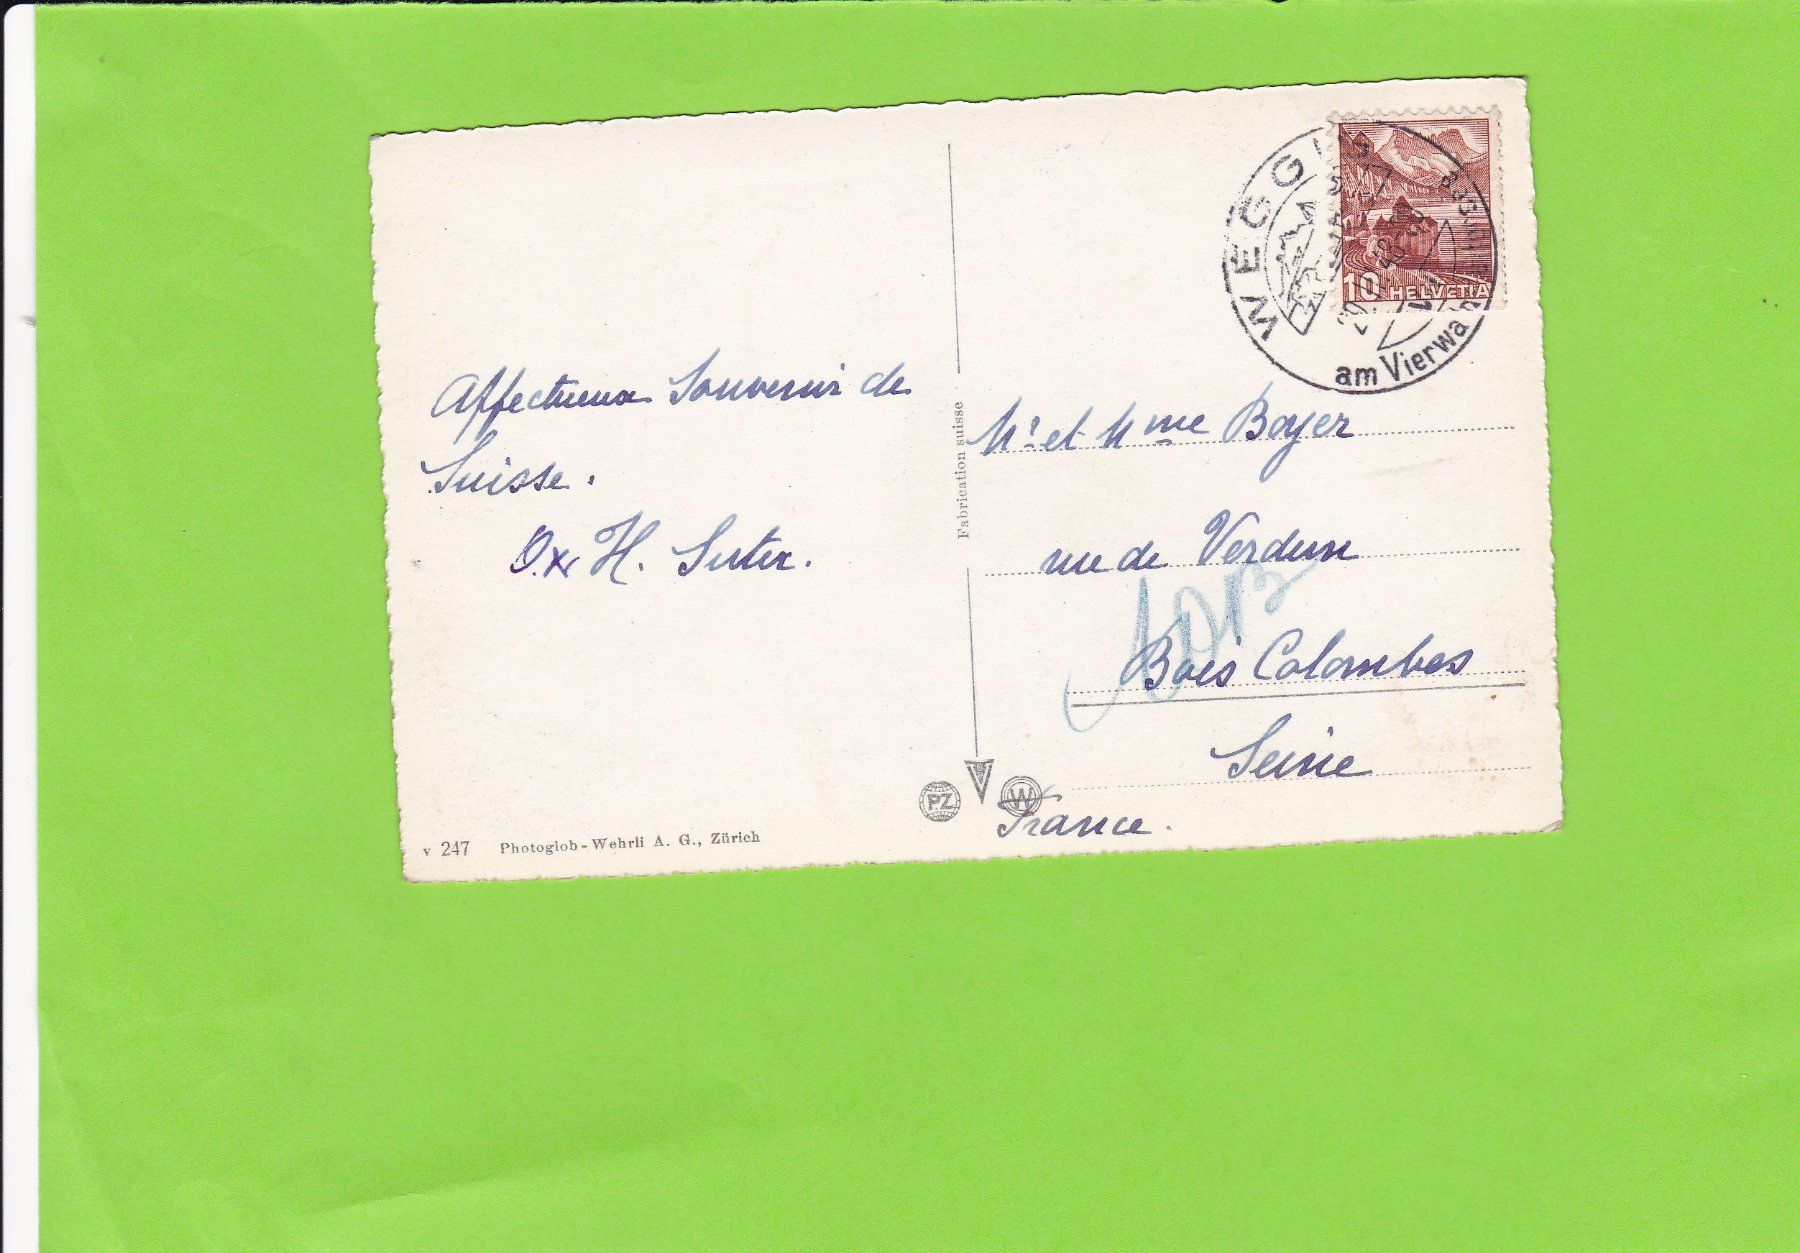 WEGGIS
am Vierwa
10 HELVETIA
Affectueux Souvenir de
Suisse.
H. Suter.
Fabrication suisse
Mr et Mme Boyer
rue de Verdun
Bois Colombes
Seine
France.
PZ
W
v 247 Photoglob-Wehrli A. G., Zürich